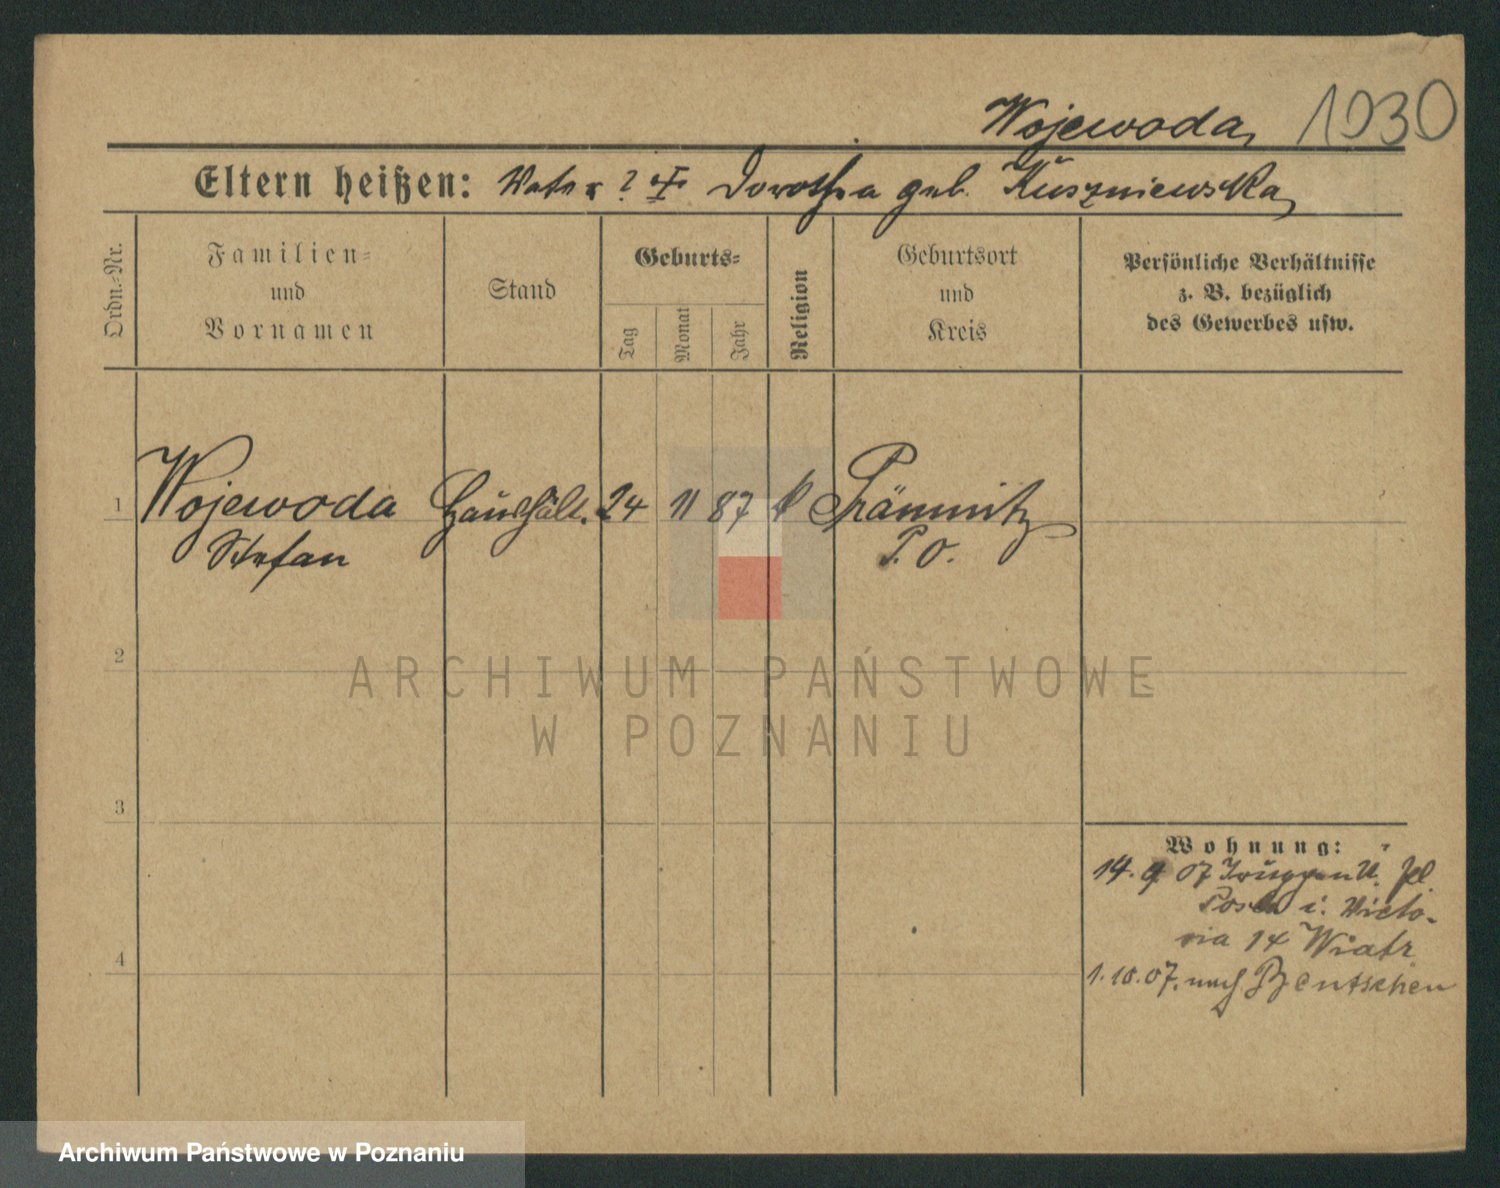 Wojewoda, 1930
Eltern heißen: Vater ? Dorothea geb. Kuszniewska
Ordn.-Nr.
Familien-
und
Vornamen
Stand
Geburts-
Tag
Monat
Jahr
Religion
Geburtsort
und
Kreis
Persönliche Verhältnisse
z. B. bezüglich
des Gewerbes usw.
1 Wojewoda Haushält. 24 11 87 k Prämnitz
Stefan P. O.
2
3
4
Wohnung:
14. 9 07 Truppen Ü. Pl.
Posen i. Victo-
ria 14 Wiatr
1.10.07. nach Bentschen
ARCHIWUM PAŃSTWOWE
W POZNANIU
Archiwum Państwowe w Poznaniu